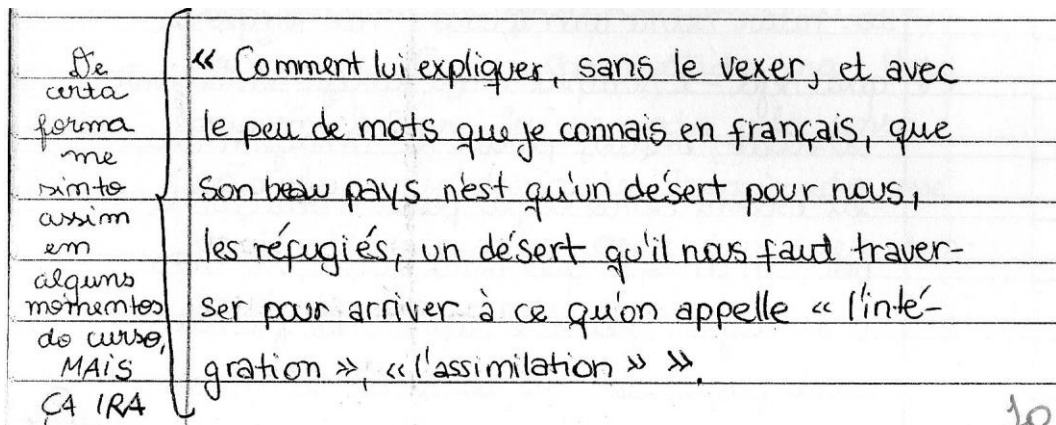 De
certa
forma
me
sinto
assim
em
alguns
momentos
do curso,
MAIS
ÇA IRA
« Comment lui expliquer, sans le vexer, et avec
le peu de mots que je connais en français, que
son beau pays n'est qu'un désert pour nous,
les réfugiés, un désert qu'il nous faut traver-
ser pour arriver à ce qu'on appelle « l'inté-
gration », « l'assimilation » ».
10